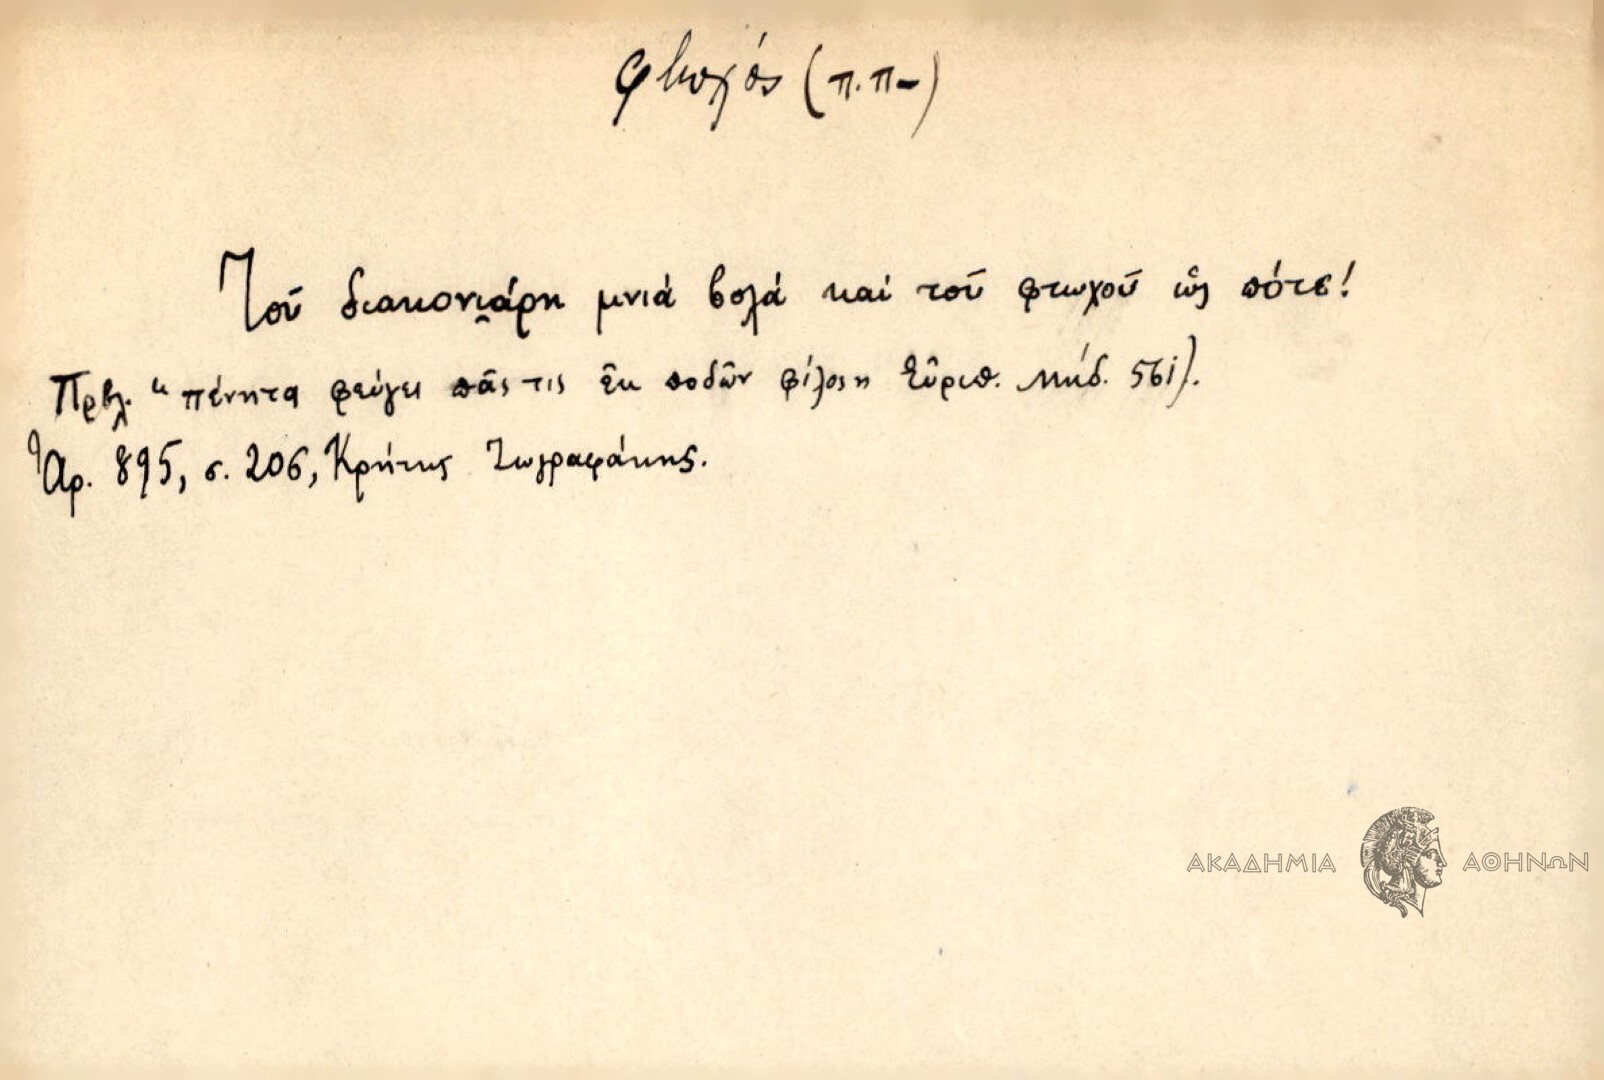 φτωχός (π.π-)
Τοῦ διακονι̯άρη μνιά βολά καί τοῦ φτωχοῦ ὥς πότε!
Πρβλ. "πένητα φεύγει πᾶς τις ἐκ ποδῶν φίλος" Εὐριπ. Μήδ. 561).
Ἀρ. 895, σ. 206, Κρήτης Ζωγραφάκης.
ΑΚΑΔΗΜΙΑ ΑΘΗΝΩΝ